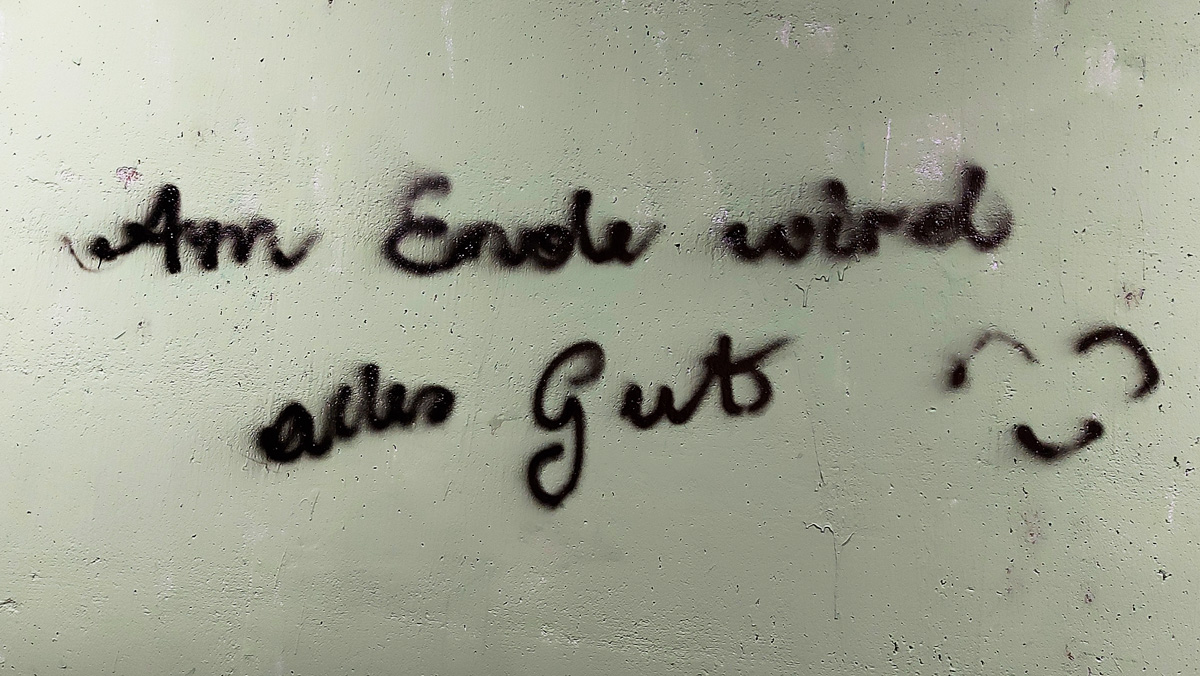 Am Ende wird
alles Gut